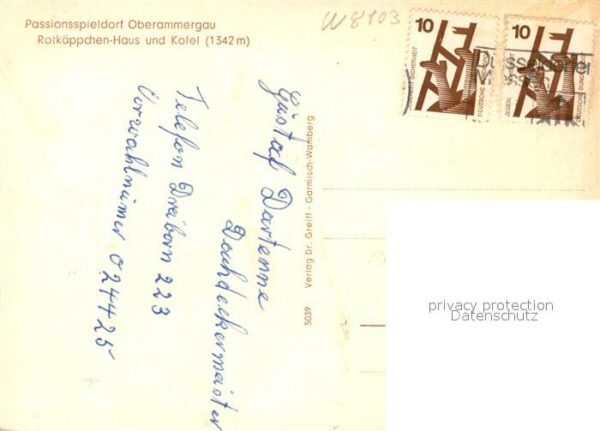 Passionsspieldorf Oberammergau
Rotkäppchen-Haus und Kofel (1342 m)
W8103
10
10
JEDERZEIT SICHERHEIT
DEUTSCHE BUNDESPOST
Düsseldorfer
Gustaf Dartenne
Dachdeckermeister
Telefon Dreiborn 223
Vorwahlnümer 024425
5039 Verlag Dr. Greiff - Garmisch-Wamberg
privacy protection
Datenschutz